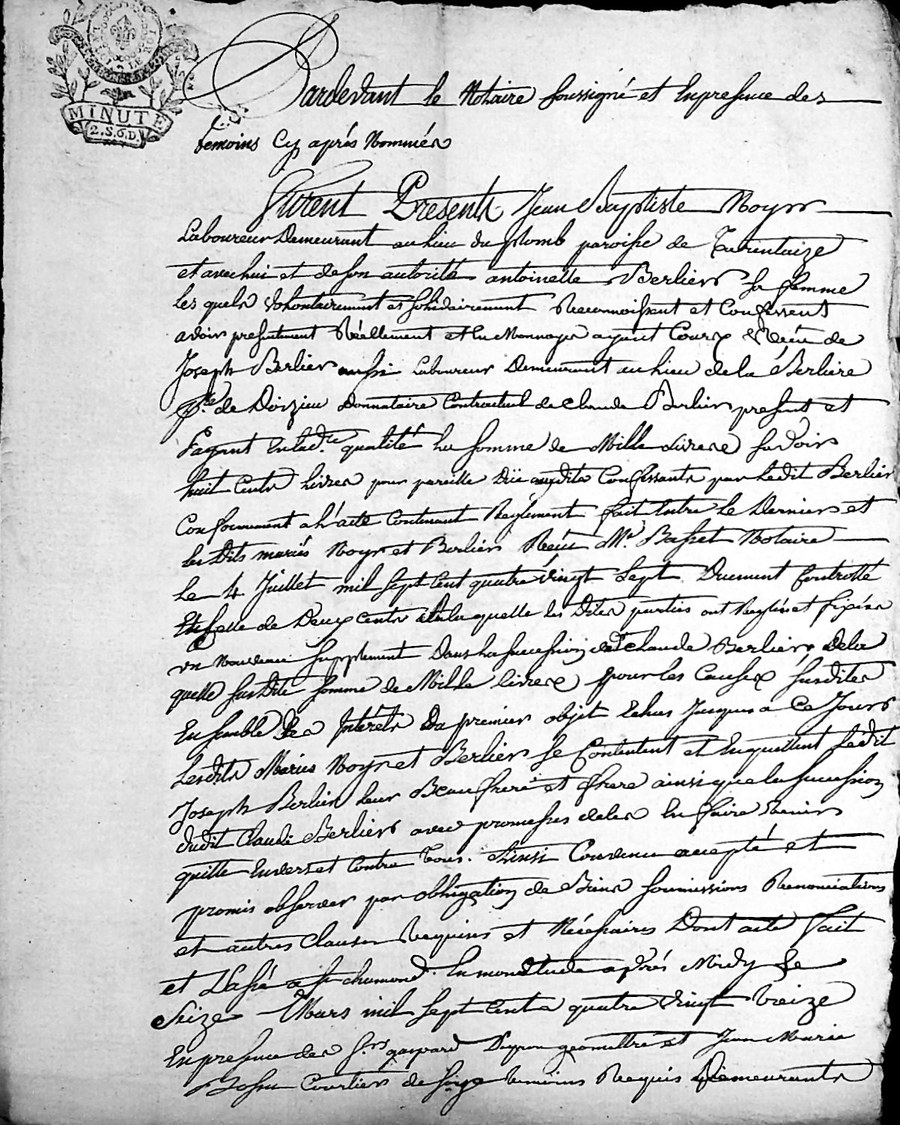 MINUTE
2.S.6.D.
Pardevant le Notaire soussigné et En presence des
temoins Cy après Nommés
Furent Presents Jean Baptiste Noyer
Laboureur Demeurant au lieu du plomb paroisse de Tarentaize
et avec lui et de son autorité antoinette Berlier sa femme
les quels volontairement et solidairement Reconnoissent et Confessent
avoir presentement Réellement et En Monnoye ayant Cours Reçu de
Joseph Berlier aussi Laboureur Demeurant au lieu de la Berliere
psse de Doizieu Donnataire Contractuel de Claude Berlier present et
payant En lad.te qualité la somme de Mille Livres savoir
huit Cents Livres pour pareille Düe auxdits Confessants par Ledit Berlier
Conformement a L'acte Contenant Règlement fait Entre Le Dernier et
les Dits mariés Noyer et Berlier Reçu Me Basset Notaire
Le 4 Juillet mil sept Cent quatre vingt sept Duement Controllé
Et Celle de Deux Cents à la quelle les Dites parties ont Reglé et fixé
un Nouveau Supplement Dans la succession dudt Claude Berlier, De la
quelle susdite somme de Mille livres pour les Causes susdites
Ensemble Des Intérêts Du premier objet Echus Jusques a Ce Jour
Lesdits Mariés Noyer et Berlier se Contentent et En quittent Ledit
Joseph Berlier leur Beau frere et frere ainsi que la succession
dudit Claude Berlier avec promesses de les En faire tenir
quitte Envers et Contre Tous. Ainsi Convenu accepté et
promis observer par obligation de Biens soumissions Renonciations
et autres Clauses Requises et Nécessaires Dont acte Fait
et Passé a St chamond En mon Etude après Midy Le
Seize Mars mil sept Cent quatre vingt treize
En presence des Srs gaspard geometre et Jean Marie
Courtier de soye temoins Requis Demeurants